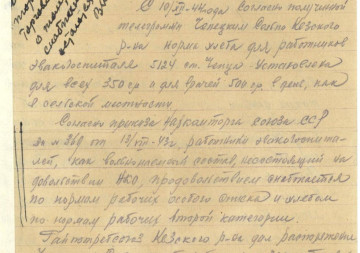 Торгов
в пол
снабжен
С 10/VII-44 года согласно полученной
телеграммы Чепецким Военно Кезского
р-на норма хлеба для работников
эвакогоспиталя 3124 ст. Чепца установлена
для всех 350 гр. а для врачей 500 гр. в день, как
в сельской местности.
Согласно приказа Наркомторга Союза ССР
за № 369 от 13/VII-43 г. работники эвакогоспита-
лей, как вольнонаемный состав, несостоящий на
довольствии НКО, продовольствием снабжается
по нормам рабочих особого списка и хлебом
по нормам рабочих второй категории.
Кезского р-на дал распоряжение